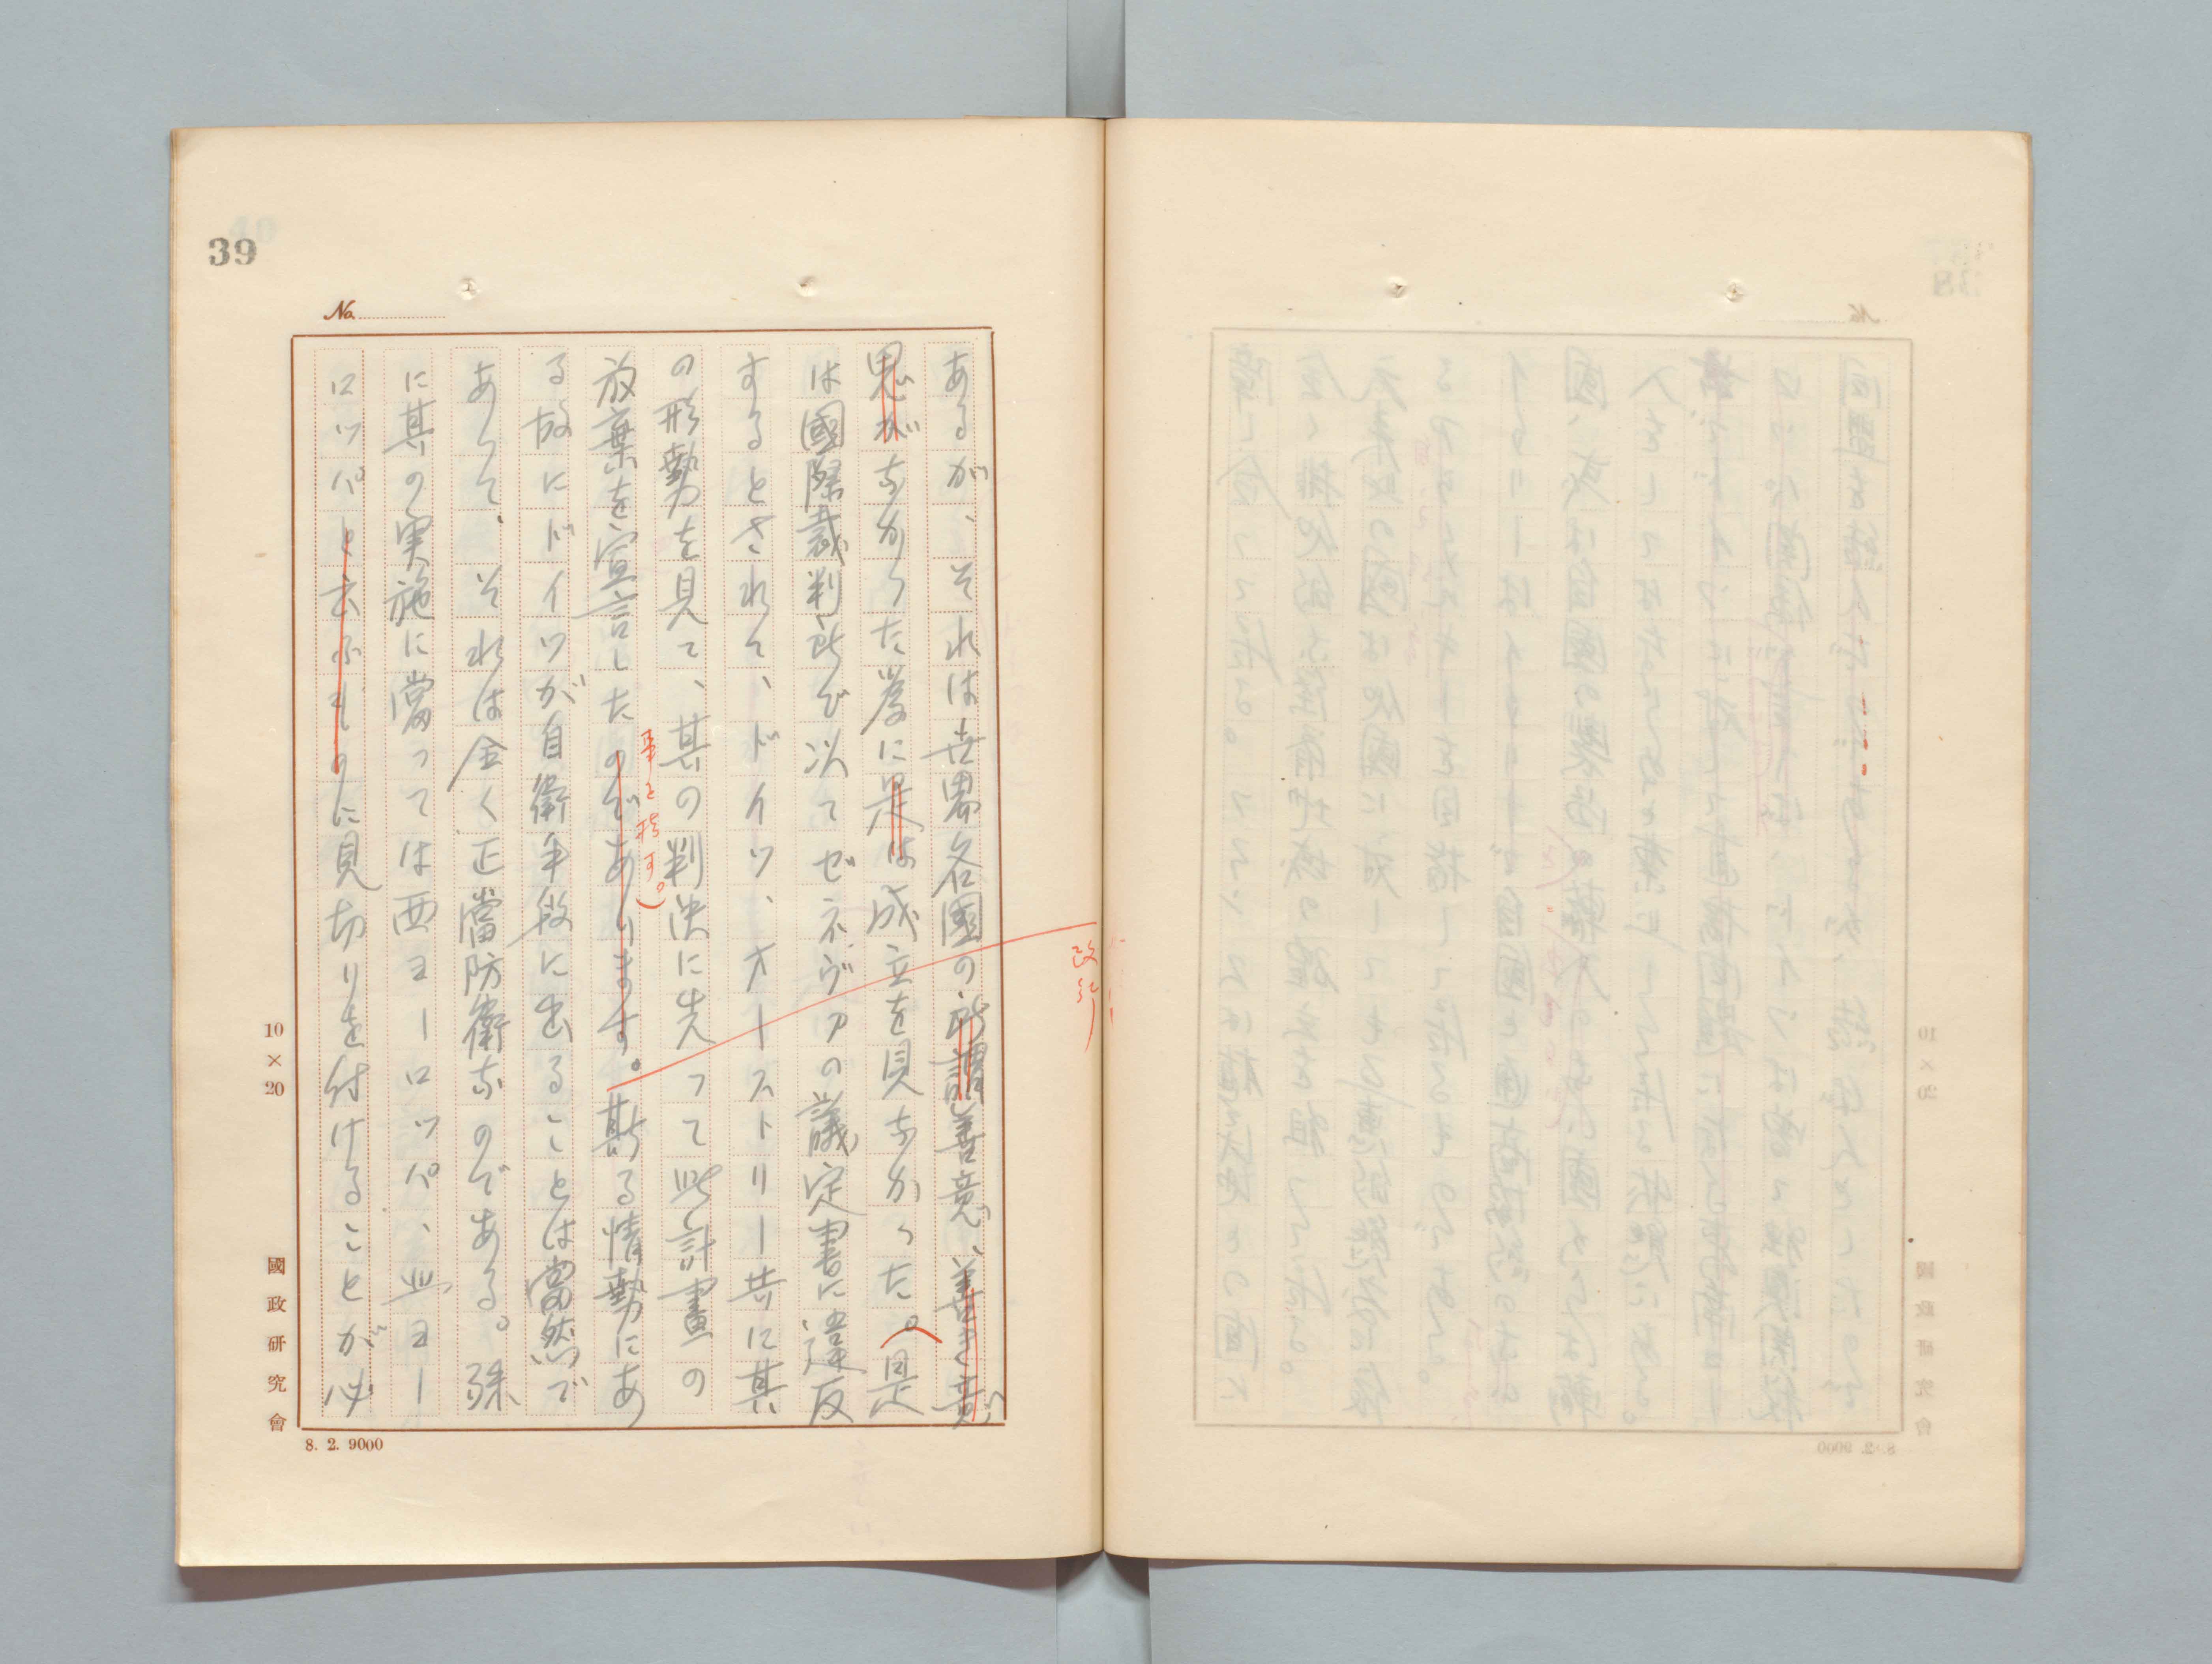 39
No.
あるが、それは世界各國の所謂善意、善き意
思がなかった爲に是は成立を見なかった。(是
は國際裁判所で以てゼネヴァの議定書に違反
するとされて、ドイツ、オーストリー共に其
の形勢を見て、其の判決に先って此計畫の
放棄を宣言したのであります。斯る情勢にあ
事を指す。)
改行
る故にドイツが自衛手段に出ることは當然で
あって、それは全く正當防衛なのである。殊
に其の実施に當っては西ヨーロッパ、ヨー
ロッパと云ふものに見切りを付けることが必
10×20
國政研究會
8. 2. 9000